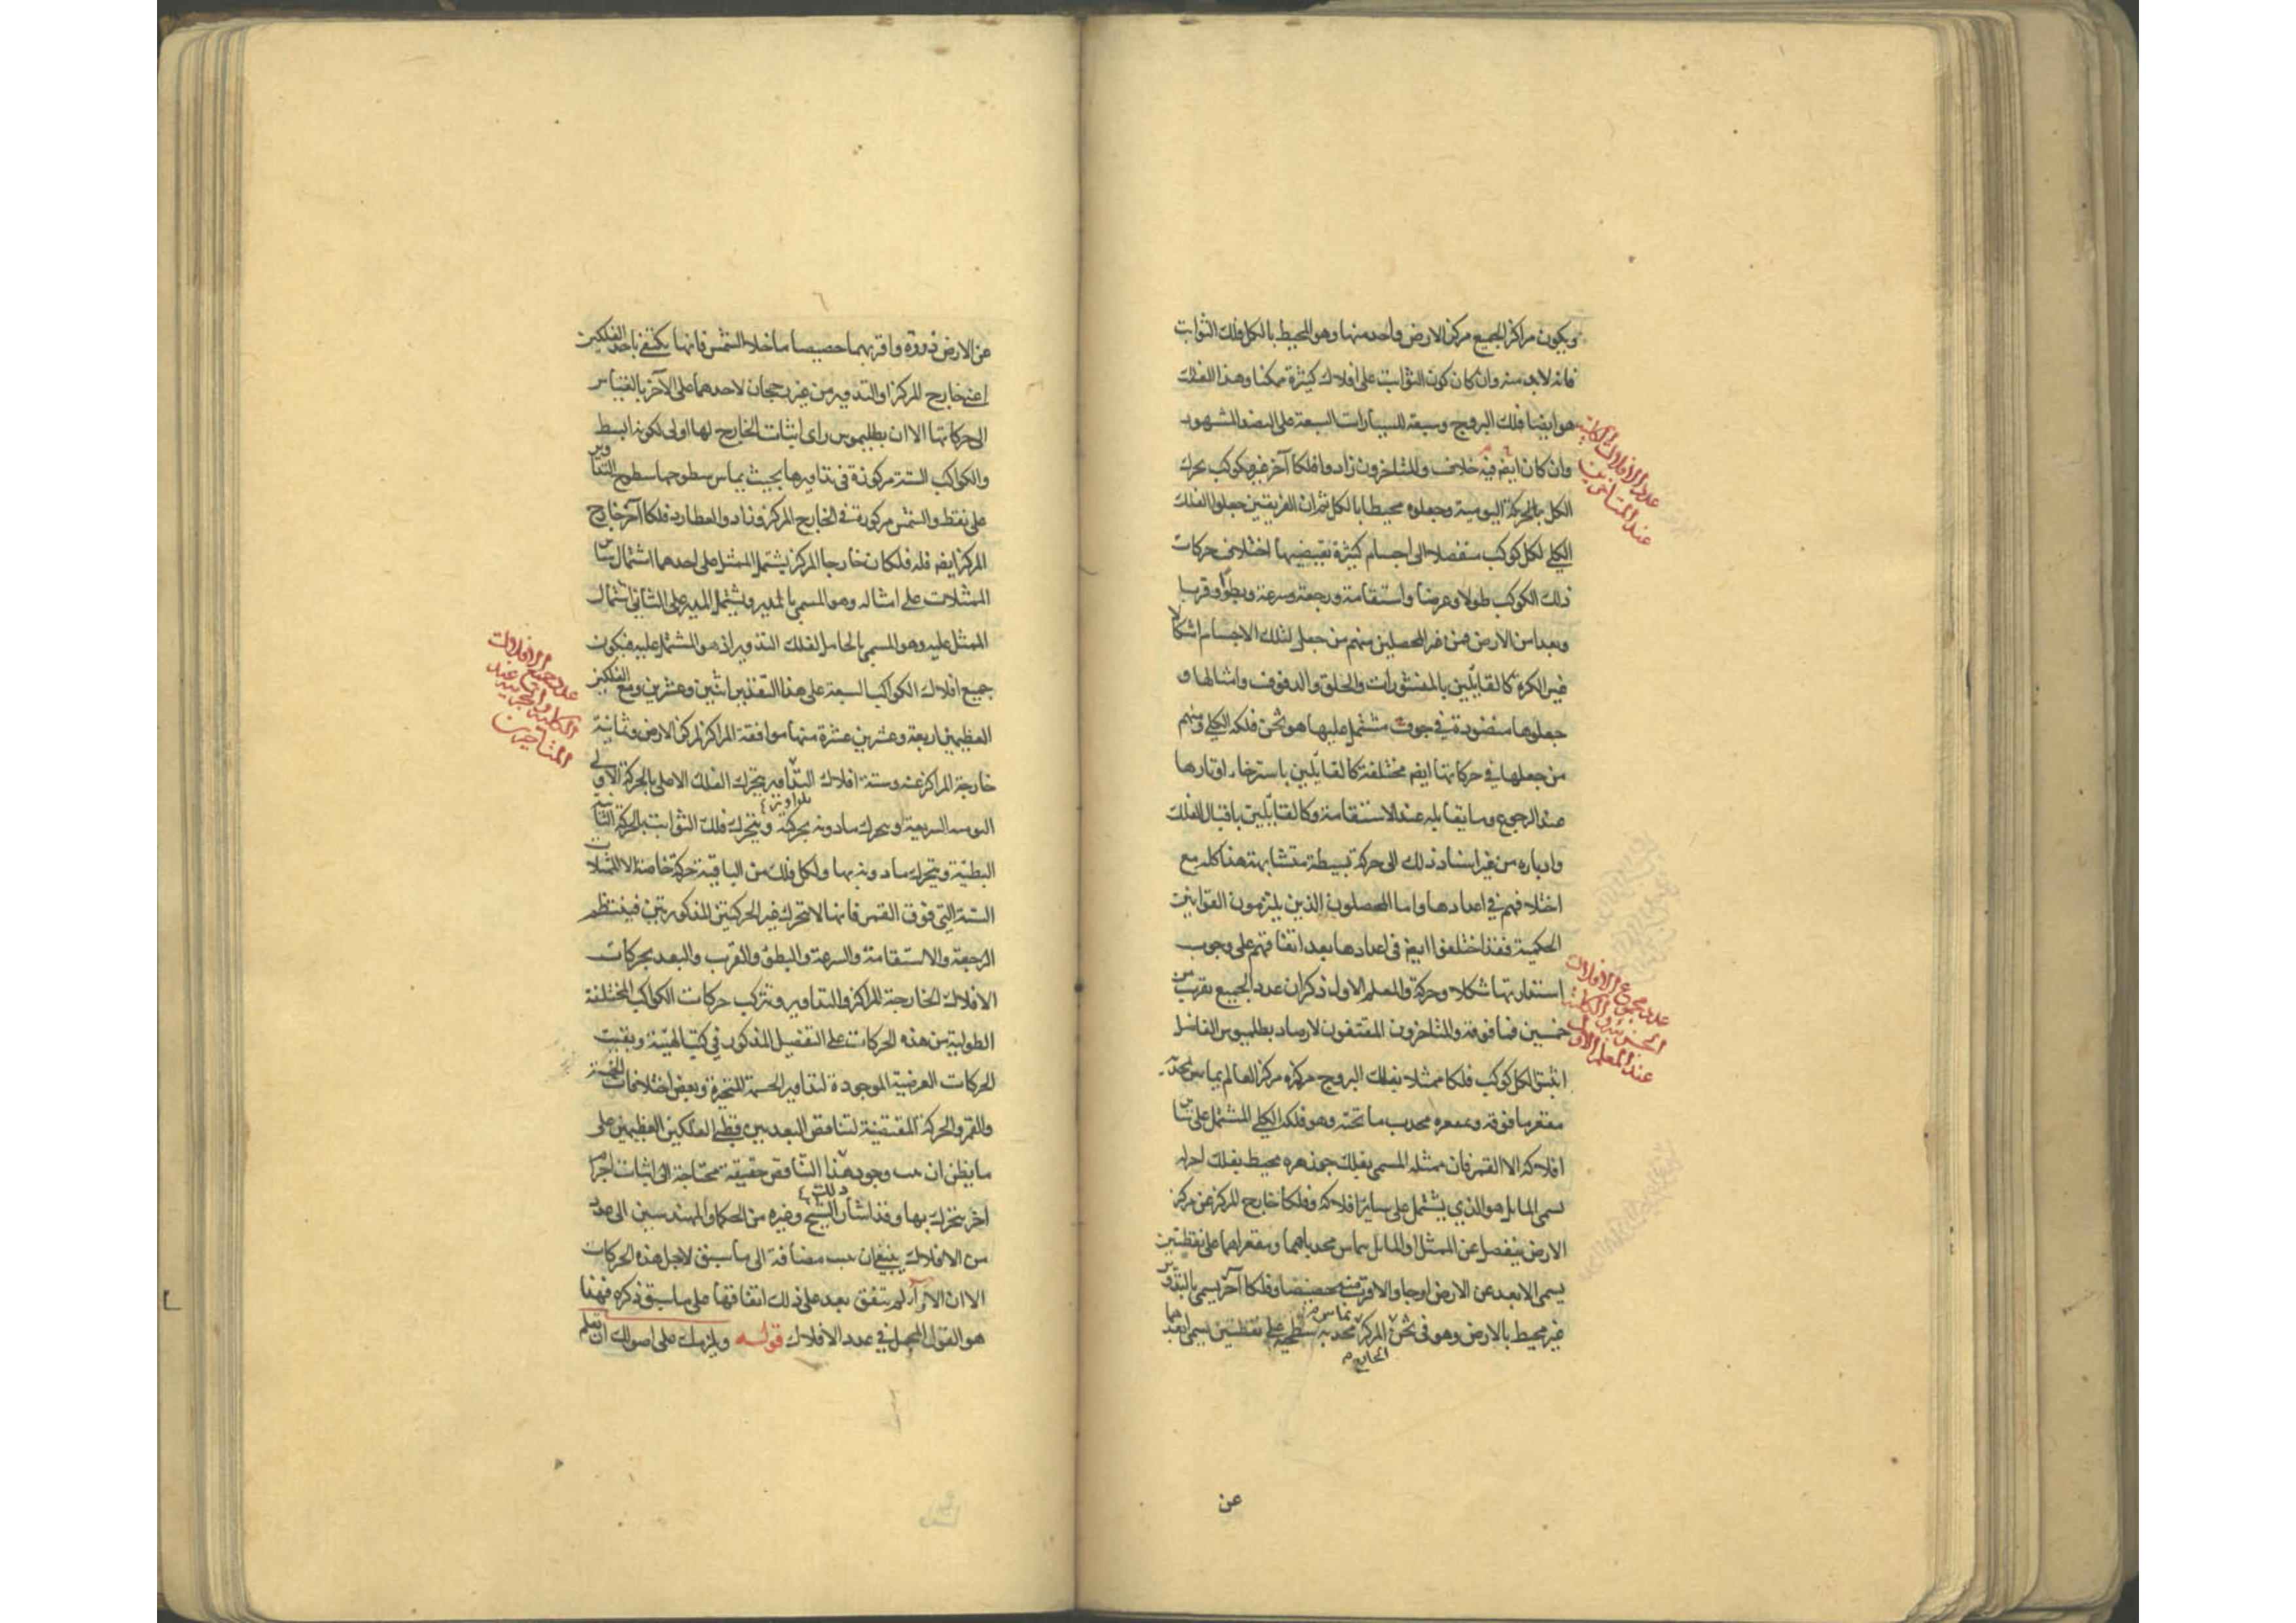 ويكون مراكز الجميع مركز الارض واحد منها وهو المحيط بالكل فلك الثوابت
فانه لابد منه وان كان كون الثوابت على افلاك كثيرة ممكنا وهذا الفلك
هو ايضا فلك البروج وسبعة للسيارات السبعة على النضد المشهود
وان كان ايضه فيه خلاف والمتاخرون زادوا فلكا آخر غير مكوكب يحرك
الكل بالحركة اليومية وجعلوه محيطا بالكل ثم ان الفريقين جعلوا الفلك
الكلى لكل كوكب منفصلا الى اجسام كثيرة يقتضيها اختلاف حركات
ذلك الكوكب طولا وعرضا واستقامة ورجعة وسرعة وبطؤا وقربا
وبعدا من الارض فمن غير المحصلين منهم من جعل لتلك الاجسام اشكالا
غير الكرة كالقائلين بالمنشورات والحلق والدفوف وامثالها و
جعلوها منضودة في جوف مشتمل عليها هو ثخن فلكه الكلي ومنهم
من جعلها في حركاتها ايضه مختلفة كالقائلين باسترخاء اوتارها
عند الرجوع وما يقابله عند الاستقامة وكالقائلين باقبال الفلك
وادباره من غير اسناد ذلك الى حركة بسيطة متشابهة هذا كله مع
اختلافهم في اعدادها واما المحصلون الذين يلتزمون القوانين
الحكمية فقد اختلفوا ايضه في اعدادها بعد اتفاقهم على وجوب
استدارتها شكلا وحركة والمعلم الاول ذكر ان عدد الجميع يقرب من
خمسين فما فوقه والمتاخرون المقتفون لارصاد بطلميوس الفاضل
اثبتوا لكل كوكب فلكا ممثلا بفلك البروج مركزه مركز العالم يماس بمحدبه
مقعر ما فوقه وبمقعره محدب ما تحته وهو فلكه الكلي المشتمل على سائر
افلاكه الا القمر فان ممثله المسمى بفلك جوزهره محيط بفلك اخر له
يسمى المايل هو الذي يشتمل على ساير افلاكه وفلكا خارج المركز عن مركز
الارض ينفصل عن الممثل او المايل يماس محدباهما ومقعراهما على نقطتين
يسمى الابعد عن الارض اوجا والاقرب منه حضيضا وفلكا آخر يسمى بالتدوير
غير محيط بالارض وهو في ثخن المركز يماس محدبه سطحيه على نقطتين يسمى ابعدهما
الخارج
عن
عدد الافلاك الكلية
عند المتاخرين
عدد مجموع الافلاك
الجزئية والكلية
عند المعلم الاول
عن الارض ذروة واقربهما حضيضا ما خلا الشمس فانها يكتفى باحد الفلكين
اعني خارج المركز او التدوير من غير رجحان لاحدهما على الآخر بالقياس
الى حركاتها الا ان بطلميوس راى اثبات الخارج لها اولى لكونه ابسط
والكواكب الستة مركوزة في تداويرها بحيث يماس سطوحها سطوح التداوير
على نقطة والشمس مركوزة في الخارج المركز وزاد والعطارد فلكا آخر خارج
المركز ايضه فله فلكان خارجا المركز يشتمل الممثل على احدهما اشتمال سائر
الممثلات على امثاله وهو المسمى بالمدير ويشتمل المدير على الثاني اشتمال
الممثل عليه وهو المسمى بالحامل لفلك التدوير اذ هو المشتمل عليه فيكون
جميع افلاك الكواكب السبعة على هذا التقدير اثنين وعشرين ومع الفلكين
العظيمين اربعة وعشرين عشرة منها موافقة المراكز لمركز الارض وثمانية
خارجة المراكز عنه وستة افلاك التداوير يتحرك الفلك الاعلى بالحركة الاولى
اليومية السريعة ويتحرك ما دونه بحركته ويتحرك فلك الثوابت بالحركة الثانية
البطيئة ويتحرك ما دونه بها ولكل فلك من الباقية حركة خاصة الا الممثلات
الستة التي فوق القمر فانها لا تتحرك غير الحركتين المذكورتين فينتظم
الرجعة والاستقامة والسرعة والبطؤ والقرب والبعد بحركات
الافلاك الخارجة المراكز والتداوير ويتركب حركات الكواكب المختلفة
الطولية من هذه الحركات على التفصيل المذكور في كتب الهيئة وبقيت
الحركات العرضية الموجودة لتداوير الخمسة المتحيرة وبعض اختلافات الخمسة
والقمر والحركة المقتضية لتناقص البعد بين قطبي الفلكين العظيمين على
ما يظن ان يجب وجود هذا التناقص حقيقة محتاجة الى اثبات اجرام
اخر يتحرك بها وقد اشار الشيخ وغيره من الحكماء والمهندسين الى عدد
من الافلاك ينبغي ان يجب مضافة الى ما سبق لاجل هذه الحركات
الا ان الاراء لم يتفق بعد على ذلك اتفاقها على ما سبق ذكره فهذا
هو القول المجمل في عدد الافلاك قوله ويلزمك على اصولك ان تعلم
عدد جميع الافلاك
الكلية والجزئية عند
المتاخرين